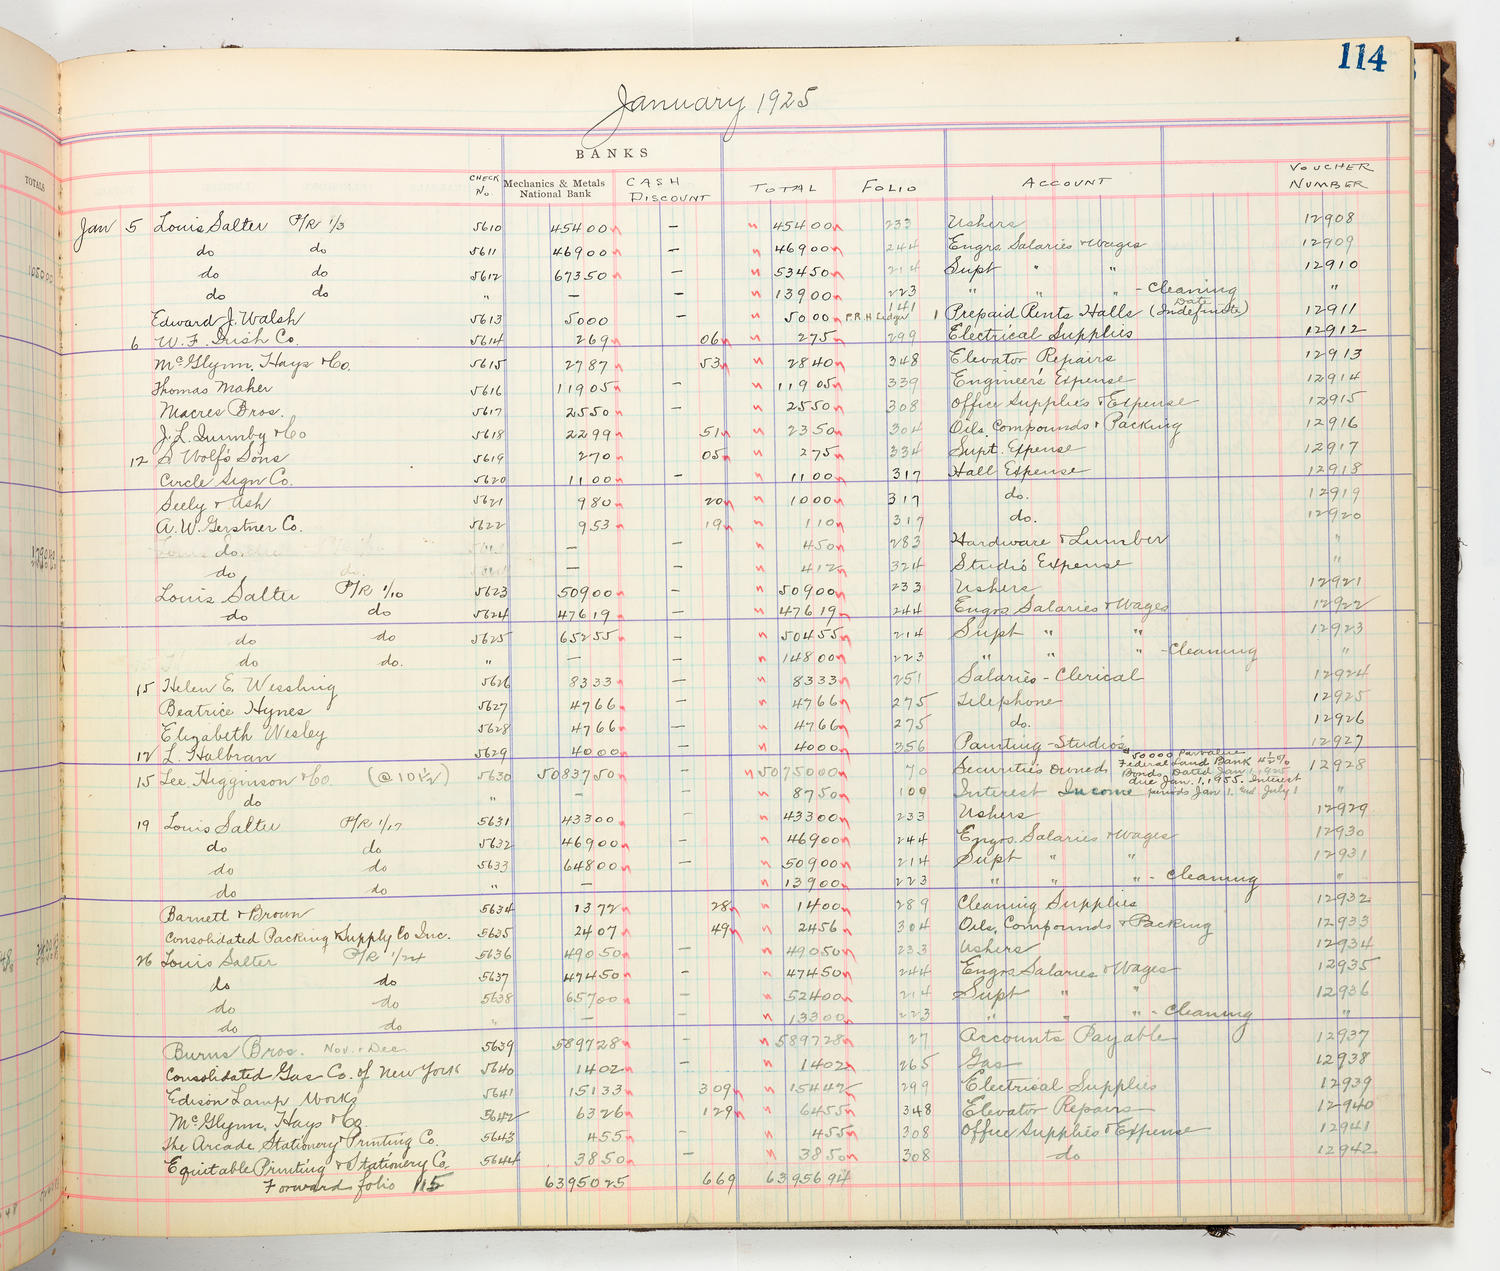 114
January 1925
BANKS
CHECK No. Mechanics & Metals National Bank CASH DISCOUNT TOTAL FOLIO ACCOUNT VOUCHER NUMBER
TOTALS
Jan 5 Louis Salter P/R 1/3 5610 45400 — 45400 233 Ushers 12908
do do 5611 46900 — 46900 244 Engrs. Salaries & Wages 12909
do do 5612 67350 — 53450 214 Supt " " 12910
do do " — — 13900 223 " " " - Cleaning "
Edward J. Walsh 5613 5000 — 5000 P.R.H. Ledger 141 1 Prepaid Rents Halls (Date Indefinite) 12911
6 W. F. Irish Co. 5614 269 06 275 299 Electrical Supplies 12912
McGlynn, Hays & Co. 5615 2787 53 2840 348 Elevator Repairs 12913
Thomas Maher 5616 11905 — 11905 339 Engineer's Expense 12914
Macres Bros. 5617 2550 — 2550 308 Office Supplies & Expense 12915
J. L. Quimby & Co 5618 2299 51 2350 304 Oils, Compounds & Packing 12916
12 S. Wolf's Sons 5619 270 05 275 334 Supt. Expense 12917
Circle Sign Co. 5620 1100 — 1100 317 Hall Expense 12918
Seely & Ash 5621 980 20 1000 317 do. 12919
A. W. Gerstner Co. 5622 953 19 110 317 do. 12920
do. — — 450 283 Hardware & Lumber "
do — — 412 324 Studio Expense "
Louis Salter P/R 1/10 5623 50900 — 50900 233 Ushers 12921
do do 5624 47619 — 47619 244 Engrs Salaries & Wages 12922
do do 5625 65255 — 50455 214 Supt " " 12923
do do. " — — 14800 223 " " " - Cleaning "
15 Helen E. Wessling 5626 8333 — 8333 251 Salaries - Clerical 12924
Beatrice Hynes 5627 4766 — 4766 275 Telephone 12925
Elizabeth Wesley 5628 4766 — 4766 275 do. 12926
12 L. Halbran 5629 4000 — 4000 356 Painting - Studios 12927
15 Lee, Higginson & Co. (@ 101 1/2) 5630 5083750 — 5075000 70 Securities Owned $50000 Par value Federal Land Bank 4 1/2% Bonds, Dated Jan 1, 1925 12928
do " — — 8750 109 Interest Income due Jan. 1, 1955. Interest periods Jan 1. and July 1 "
19 Louis Salter P/R 1/17 5631 43300 — 43300 233 Ushers 12929
do do 5632 46900 — 46900 244 Engrs. Salaries & Wages 12930
do do 5633 64800 — 50900 214 Supt " " 12931
do do " — 13900 223 " " " - Cleaning "
Barnett & Brown 5634 1372 28 1400 289 Cleaning Supplies 12932
Consolidated Packing & Supply Co Inc. 5635 2407 49 2456 304 Oils, Compounds & Packing 12933
26 Louis Salter P/R 1/24 5636 49050 — 49050 233 Ushers 12934
do do 5637 47450 — 47450 244 Engrs Salaries & Wages 12935
do do 5638 65700 — 52400 214 Supt " " 12936
do do " — — 13300 223 " " " - Cleaning "
Burns Bros. Nov. & Dec. 5639 589728 589728 27 Accounts Payable 12937
Consolidated Gas Co. of New York 5640 1402 — 1402 265 Gas 12938
Edison Lamp Works 5641 15133 309 15442 299 Electrical Supplies 12939
McGlynn, Hays & Co. 5642 6326 129 6455 348 Elevator Repairs 12940
The Arcade Stationery & Printing Co. 5643 455 — 455 308 Office Supplies & Expense 12941
Equitable Printing & Stationery Co. 5644 3850 — 3850 308 do 12942
Forward folio 115 6395025 669 6395694